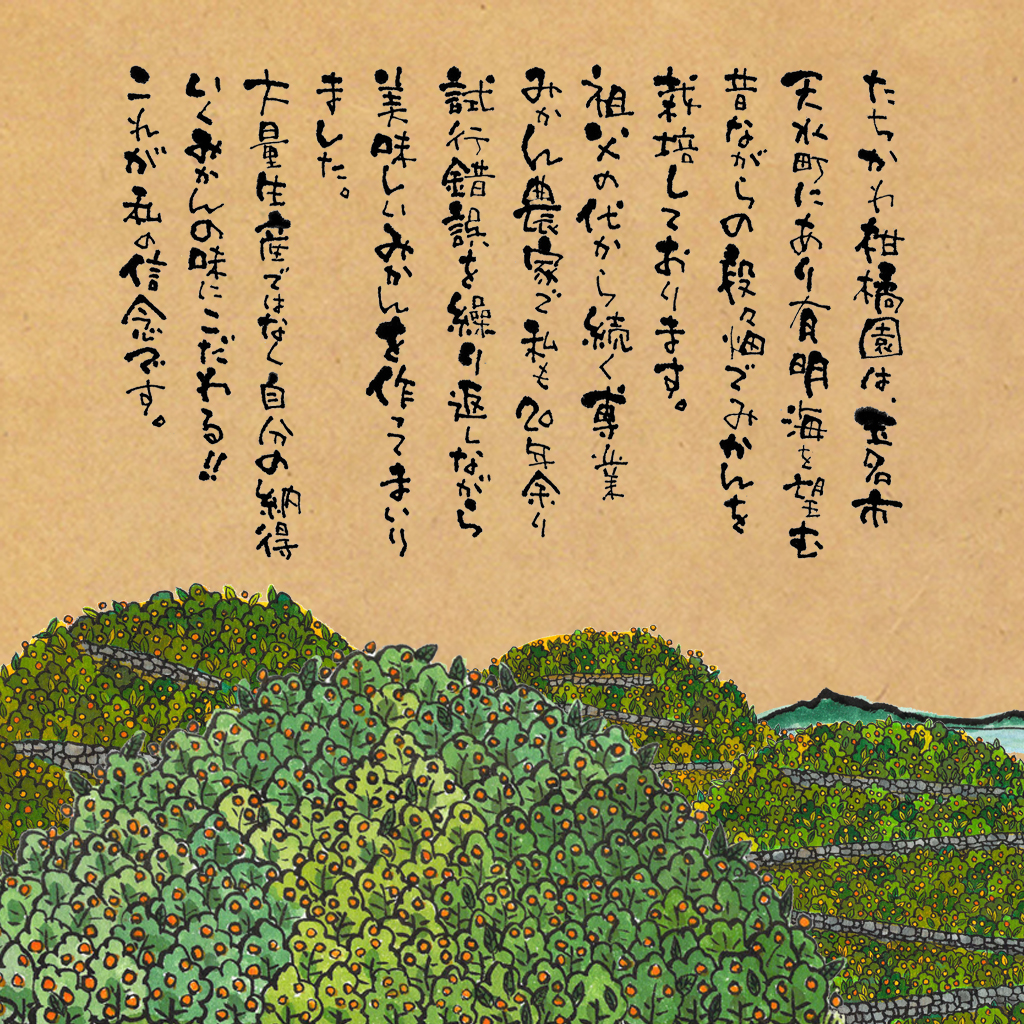 たちかわ柑橘園は、玉名市
天水町にあり有明海を望む
昔ながらの段々畑でみかんを
栽培しております。
祖父の代から続く専業
みかん農家で私も20年余り
試行錯誤を繰り返しながら
美味しいみかんを作ってまいり
ました。
大量生産ではなく自分の納得
いくみかんの味にこだわる!!
これが私の信念です。